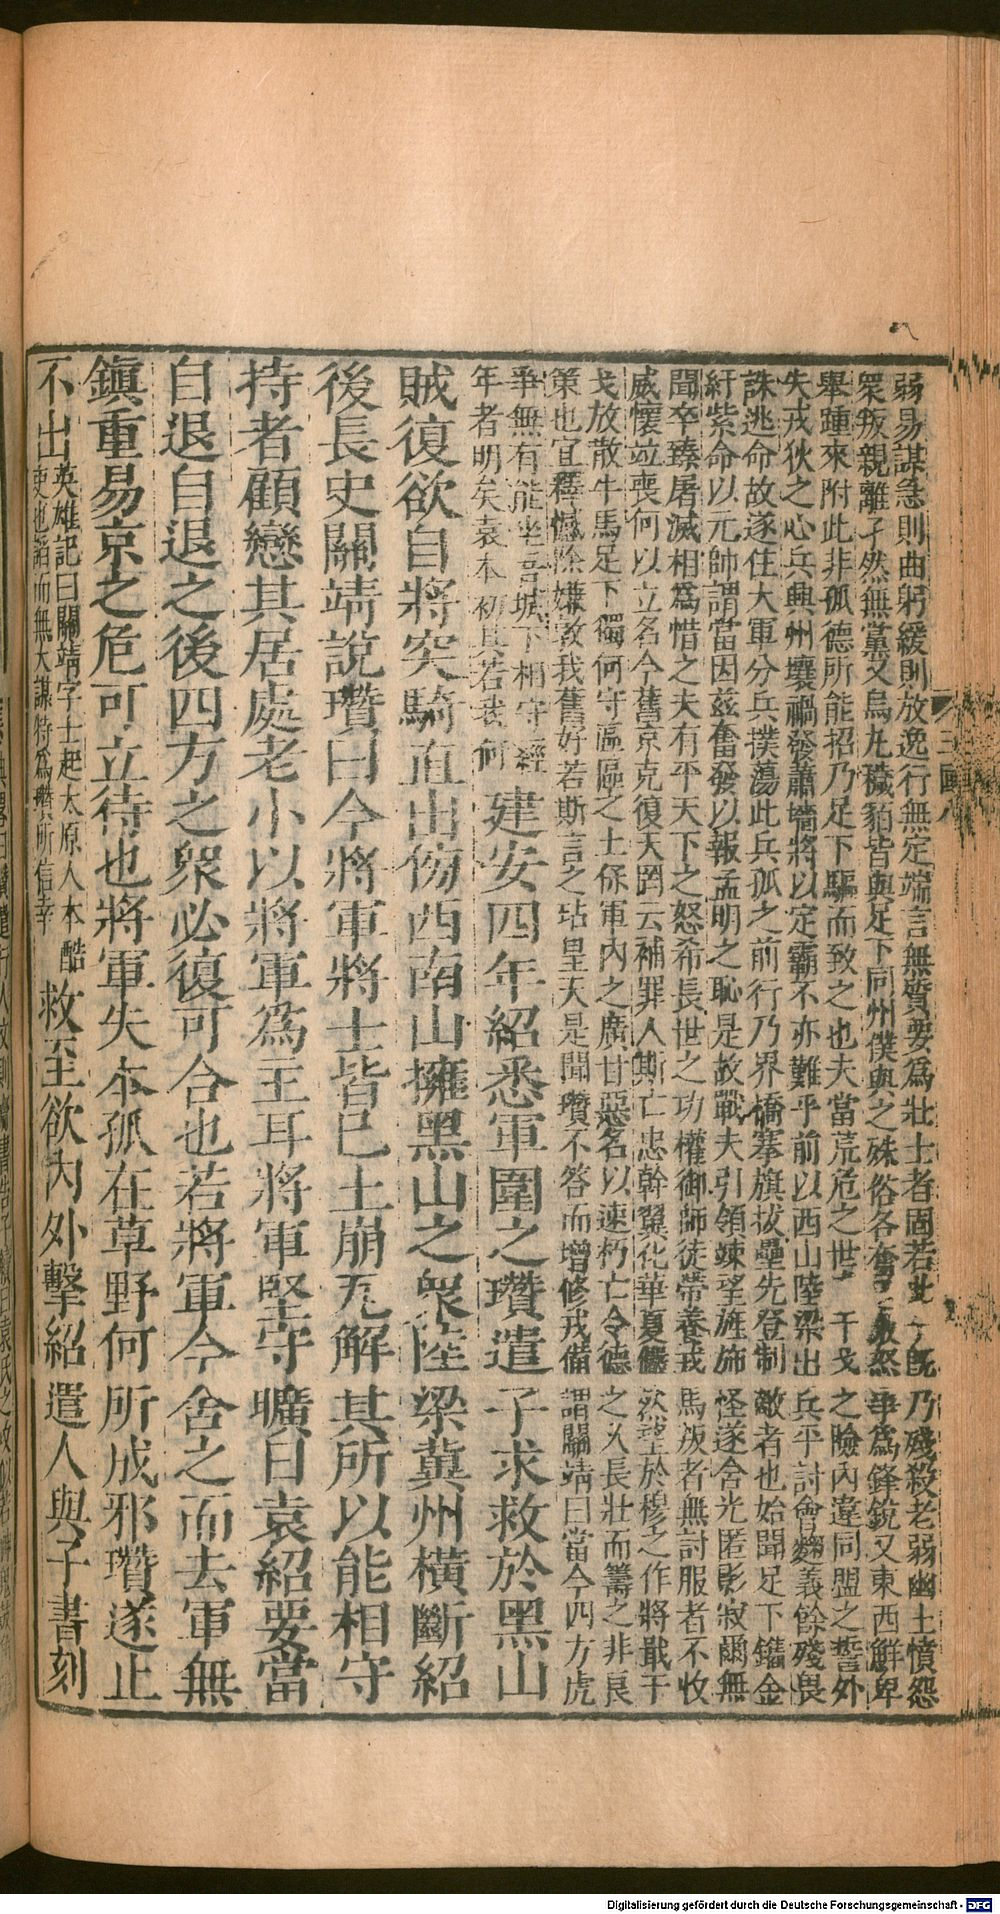 弱易謀急則曲躬緩則放逸行無定端言無質要爲壯士者固若此乎既乃殘殺老弱幽土憤怨
衆叛親離孑然無黨又烏丸穢貊皆與足下同州僕與之殊俗各奮迅激怒爭爲鋒銳又東西鮮卑
舉踵來附此非孤德所能招乃足下驅而致之也夫當荒危之世干戈之險內違同盟之誓外
失戎狄之心兵興州壤禍發蕭墻將以定霸不亦難乎前以西山陸梁出兵平討會麴義餘殘畏
誅逃命故遂住大軍分兵撲蕩此兵孤之前行乃界橋搴旗拔壘先登制敵者也始聞足下鐫金
紆紫命以元帥謂當因茲奮發以報孟明之恥是故戰夫引領竦望旌旆怪遂含光匿影寂爾無
聞卒臻屠滅相爲惜之夫有平天下之怒希長世之功權御師徒帶養戎馬叛者無討服者不收
威懷竝喪何以立名今舊京克復天罔云補罪人斯亡忠幹翼化華夏儼然望於穆之作將戢干
戈放散牛馬足下獨何守區區之土保軍內之廣甘惡名以速朽亡令德之久長壯而籌之非良
策也宜釋憾除嫌敦我舊好若斯言之玷皇天是聞瓚不答而增修戎備謂關靖曰當今四方虎
爭無有能坐吾城下相守經
年者明矣袁本初其若我何
建安四年紹悉軍圍之瓚遣子求救於黑山
賊復欲自將突騎直出傍西南山擁黑山之衆陸梁冀州橫斷紹
後長史關靖說瓚曰今將軍將士皆已土崩瓦解其所以能相守
持者顧戀其居處老小以將軍爲主耳將軍堅守曠日袁紹要當
自退自退之後四方之衆必復可合也若將軍今舍之而去軍無
鎭重易京之危可立待也將軍失本孤在草野何所成邪瓚遂止
不出
英雄記曰關靖字士起太原人本酷
吏也諂而無大謀特爲瓚所信幸
救至欲內外擊紹遣人與子書刻
三國八
Digitalisierung gefördert durch die Deutsche Forschungsgemeinschaft - DFG